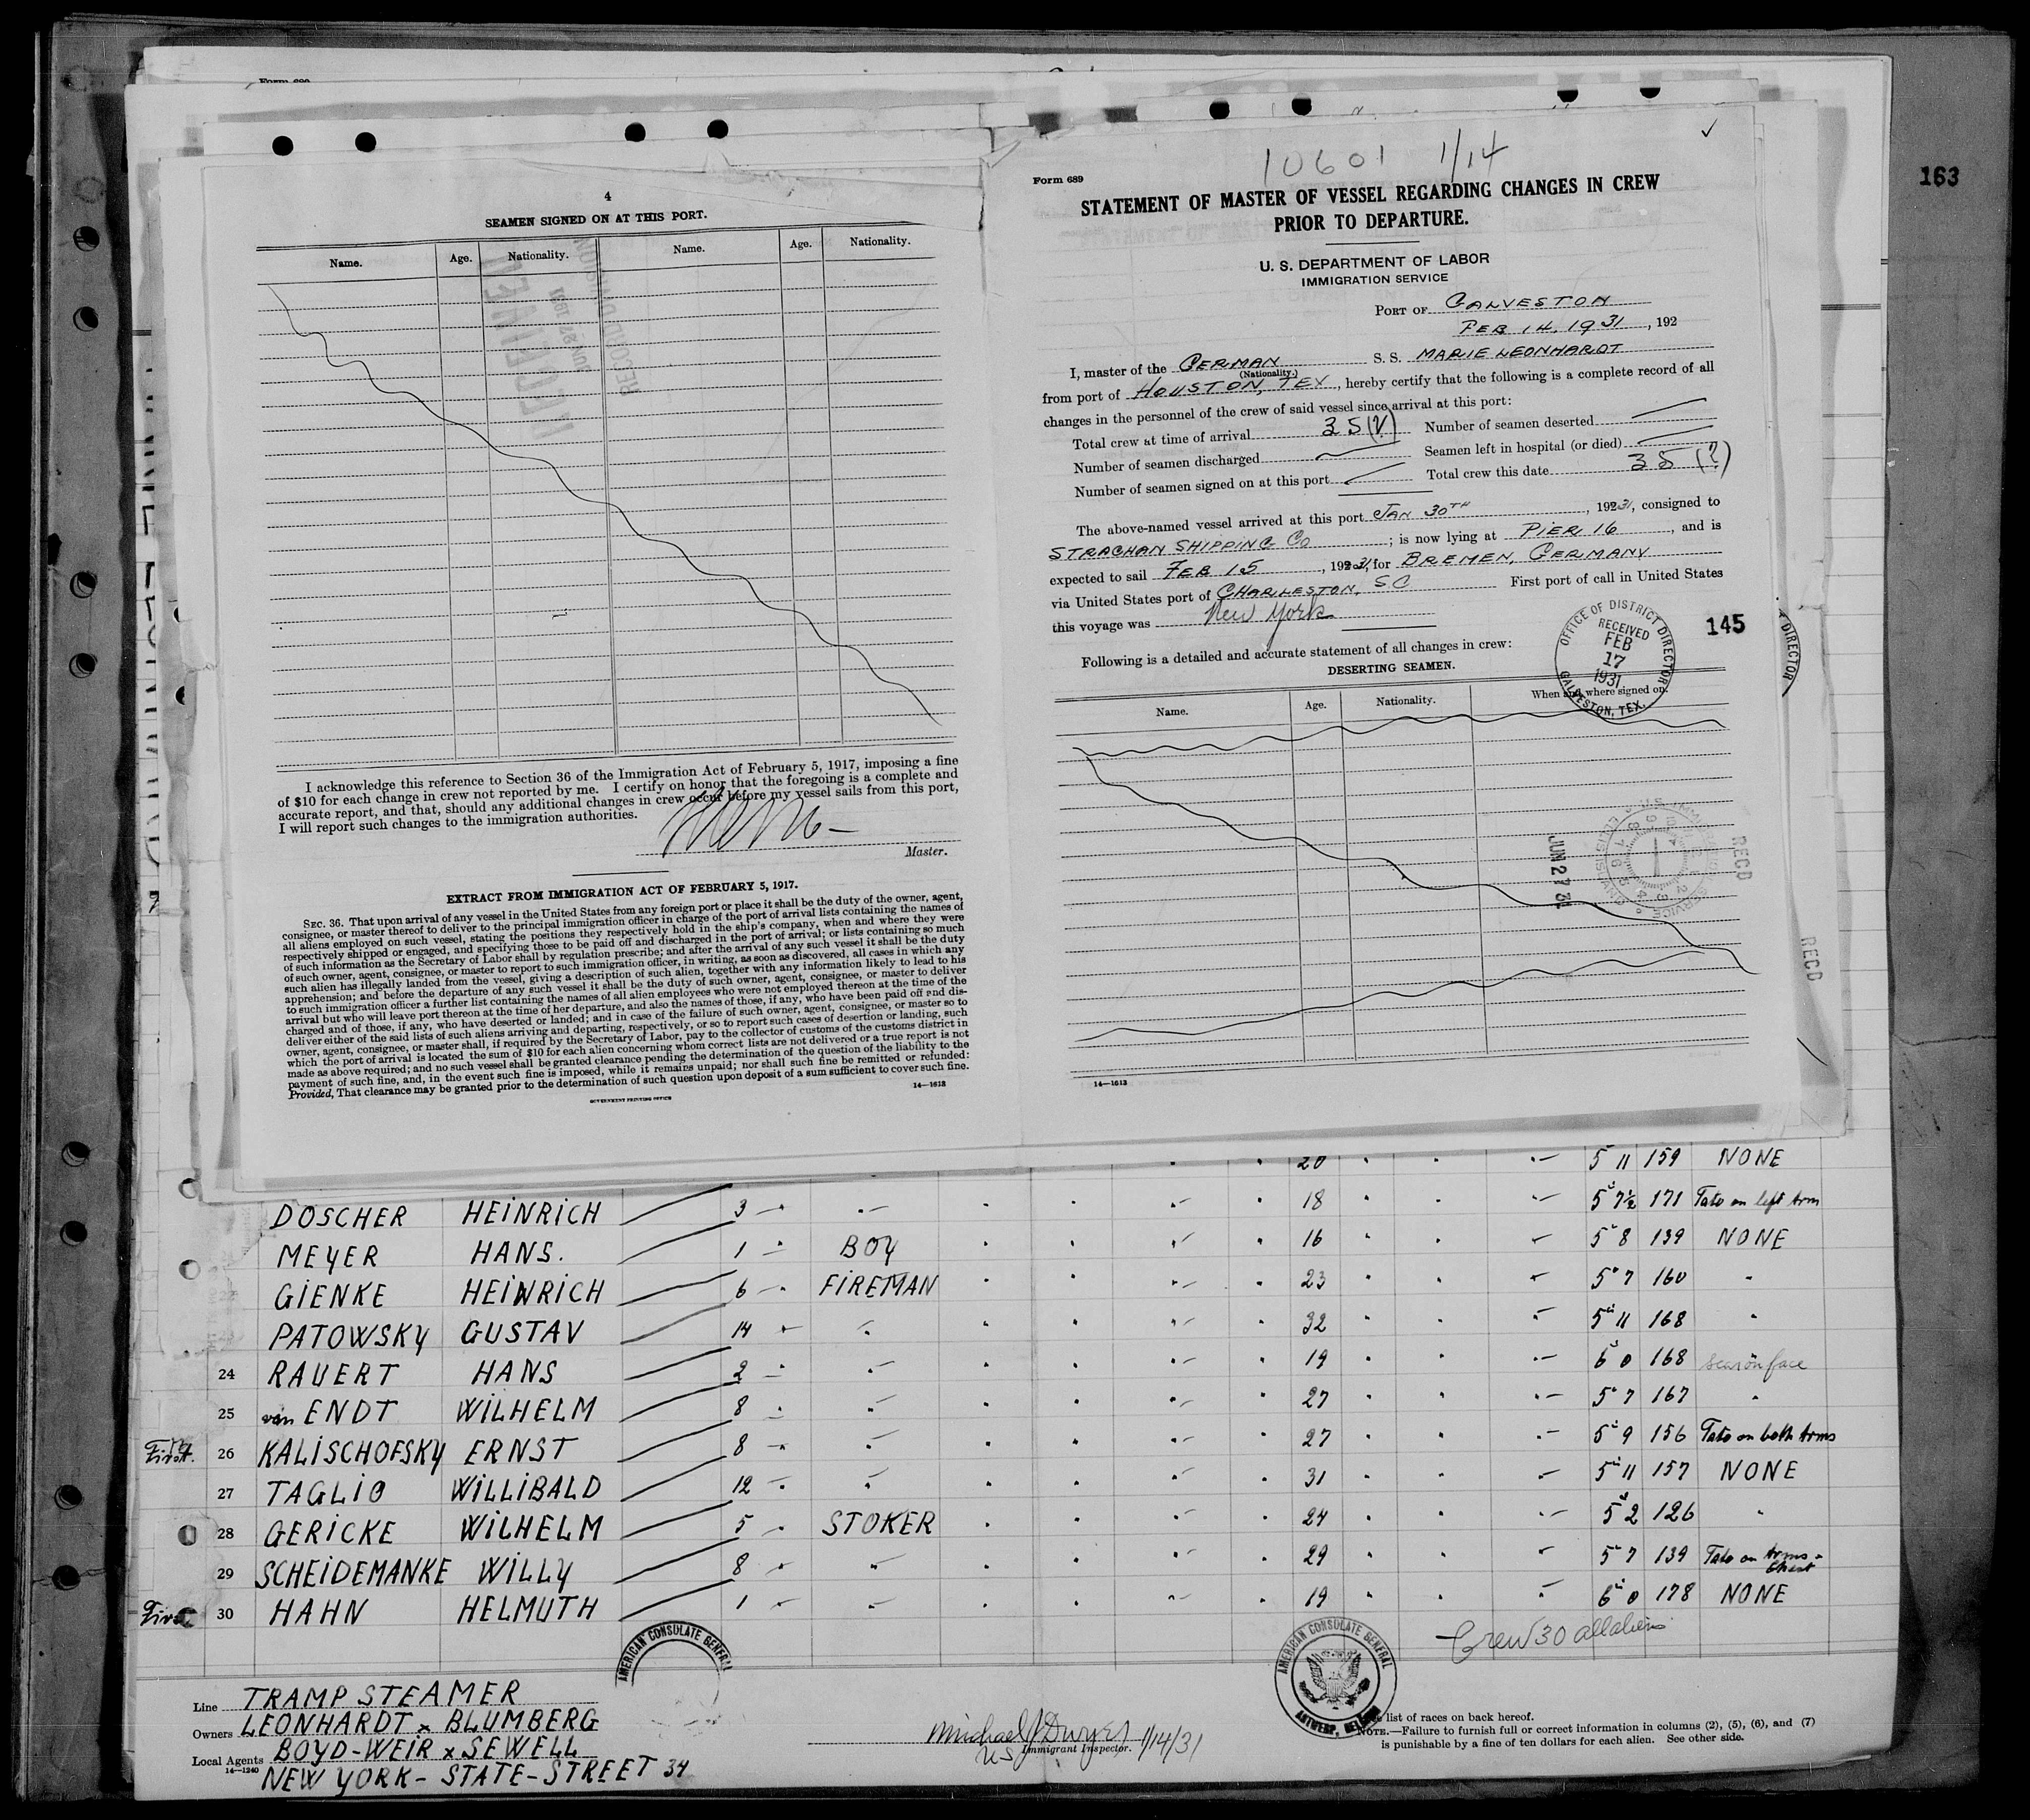 163
4
SEAMEN SIGNED ON AT THIS PORT.
Name. Age. Nationality. Name. Age. Nationality.
I acknowledge this reference to Section 36 of the Immigration Act of February 5, 1917, imposing a fine
of $10 for each change in crew not reported by me. I certify on honor that the foregoing is a complete and
accurate report, and that, should any additional changes in crew occur before my vessel sails from this port,
I will report such changes to the immigration authorities.
Master.
EXTRACT FROM IMMIGRATION ACT OF FEBRUARY 5, 1917.
SEC. 36. That upon arrival of any vessel in the United States from any foreign port or place it shall be the duty of the owner, agent,
consignee, or master thereof to deliver to the principal immigration officer in charge of the port of arrival lists containing the names of
all aliens employed on such vessel, stating the positions they respectively hold in the ship's company, when and where they were
respectively shipped or engaged, and specifying those to be paid off and discharged in the port of arrival; or lists containing so much
of such information as the Secretary of Labor shall by regulation prescribe; and after the arrival of any such vessel it shall be the duty
of such owner, agent, consignee, or master to report to such immigration officer, in writing, as soon as discovered, all cases in which any
such alien has illegally landed from the vessel, giving a description of such alien, together with any information likely to lead to his
apprehension; and before the departure of any such vessel it shall be the duty of such owner, agent, consignee, or master to deliver
to such immigration officer a further list containing the names of all alien employees who were not employed thereon at the time of the
arrival but who will leave port thereon at the time of her departure, and also the names of those, if any, who have been paid off and dis-
charged and of those, if any, who have deserted or landed; and in case of the failure of such owner, agent, consignee, or master so to
deliver either of the said lists of such aliens arriving and departing, respectively, or so to report such cases of desertion or landing, such
owner, agent, consignee, or master shall, if required by the Secretary of Labor, pay to the collector of customs of the customs district in
which the port of arrival is located the sum of $10 for each alien concerning whom correct lists are not delivered or a true report is not
made as above required; and no such vessel shall be granted clearance pending the determination of the question of the liability to the
payment of such fine, and, in the event such fine is imposed, while it remains unpaid; nor shall such fine be remitted or refunded:
Provided, That clearance may be granted prior to the determination of such question upon deposit of a sum sufficient to cover such fine.
14—1613
GOVERNMENT PRINTING OFFICE
10601 1/14
Form 689
STATEMENT OF MASTER OF VESSEL REGARDING CHANGES IN CREW
PRIOR TO DEPARTURE.
U. S. DEPARTMENT OF LABOR
IMMIGRATION SERVICE
PORT OF GALVESTON
FEB 14, 1931, 192
I, master of the GERMAN S. S. MARIE LEONHARDT
(Nationality.)
from port of HOUSTON, TEX, hereby certify that the following is a complete record of all
changes in the personnel of the crew of said vessel since arrival at this port:
Total crew at time of arrival 35 (?) Number of seamen deserted
Number of seamen discharged Seamen left in hospital (or died)
Number of seamen signed on at this port Total crew this date 35 (?)
The above-named vessel arrived at this port JAN 30TH, 1931, consigned to
STRACHAN SHIPPING Co; is now lying at PIER 16, and is
expected to sail FEB 15, 1931, for BREMEN, GERMANY
via United States port of CHARLESTON, SC First port of call in United States
this voyage was New York
OFFICE OF DISTRICT DIRECTOR
RECEIVED
FEB
17
1931
GALVESTON, TEX.
145
DIRECTOR
Following is a detailed and accurate statement of all changes in crew:
DESERTING SEAMEN.
Name. Age. Nationality. When and where signed on.
JUN 27 31
RECD
RECD
14—1613
20 5 11 159 NONE
DOSCHER HEINRICH 3 18 5 7½ 171 Tato on left Arm
MEYER HANS. 1 BOY 16 5 8 139 NONE
GIENKE HEINRICH 6 FIREMAN 23 5 7 160 "
PATOWSKY GUSTAV 14 " 32 5 11 168 "
24 RAUERT HANS 2 " 19 6 0 168 scar on face
25 van ENDT WILHELM 8 " 27 5 7 167 "
First. 26 KALISCHOFSKY ERNST 8 " 27 5 9 156 Tato on both Arms
27 TAGLIO WILLIBALD 12 " 31 5 11 157 NONE
28 GERICKE WILHELM 5 STOKER 24 5 2 126 "
29 SCHEIDEMANKE WILLY 8 " 29 5 7 139 Tato on Arms - Chest
First 30 HAHN HELMUTH 1 " 19 6 0 178 NONE
Crew 30 all aliens
AMERICAN CONSULATE GENERAL
AMERICAN CONSULATE GENERAL
ANTWERP, BELGIUM
Line TRAMP STEAMER
Owners LEONHARDT x BLUMBERG
Local Agents BOYD-WEIR x SEWELL
14—1240
NEW YORK - STATE-STREET 34
Michael J Dwyer 1/14/31
US Immigrant Inspector.
list of races on back hereof.
NOTE.—Failure to furnish full or correct information in columns (2), (5), (6), and (7)
is punishable by a fine of ten dollars for each alien. See other side.